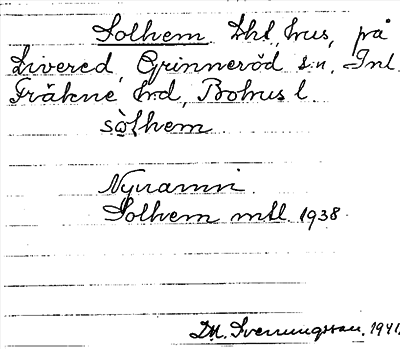 Solhem Lht, hus, på
Livered, Grinneröd sn, Inl.
Fräkne hd, Bohus l.
sòlhem
Nynamn
Solhem mtl. 1938.
M. Svenungsson, 1941.